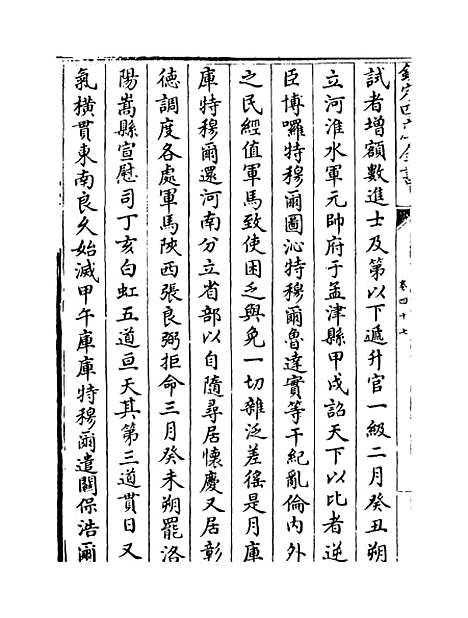 欽定四庫全書
卷四十七
試者增額數進士及第以下遞升官一級二月癸丑朔
立河淮水軍元帥府于孟津縣甲戌詔天下以比者逆
臣博囉特穆爾圖沁特穆爾魯達實等干紀亂倫內外
之民經值軍馬致使困乏與免一切雜泛差徭是月庫
庫特穆爾還河南分立省部以自隨尋居懷慶又居彰
徳調度各處軍馬陝西張良弼拒命三月癸未朔罷洛
陽嵩縣宣慰司丁亥白虹五道亘天其第三道貫日又
氣橫貫東南良久始滅甲午庫庫特穆爾遣闗保浩爾